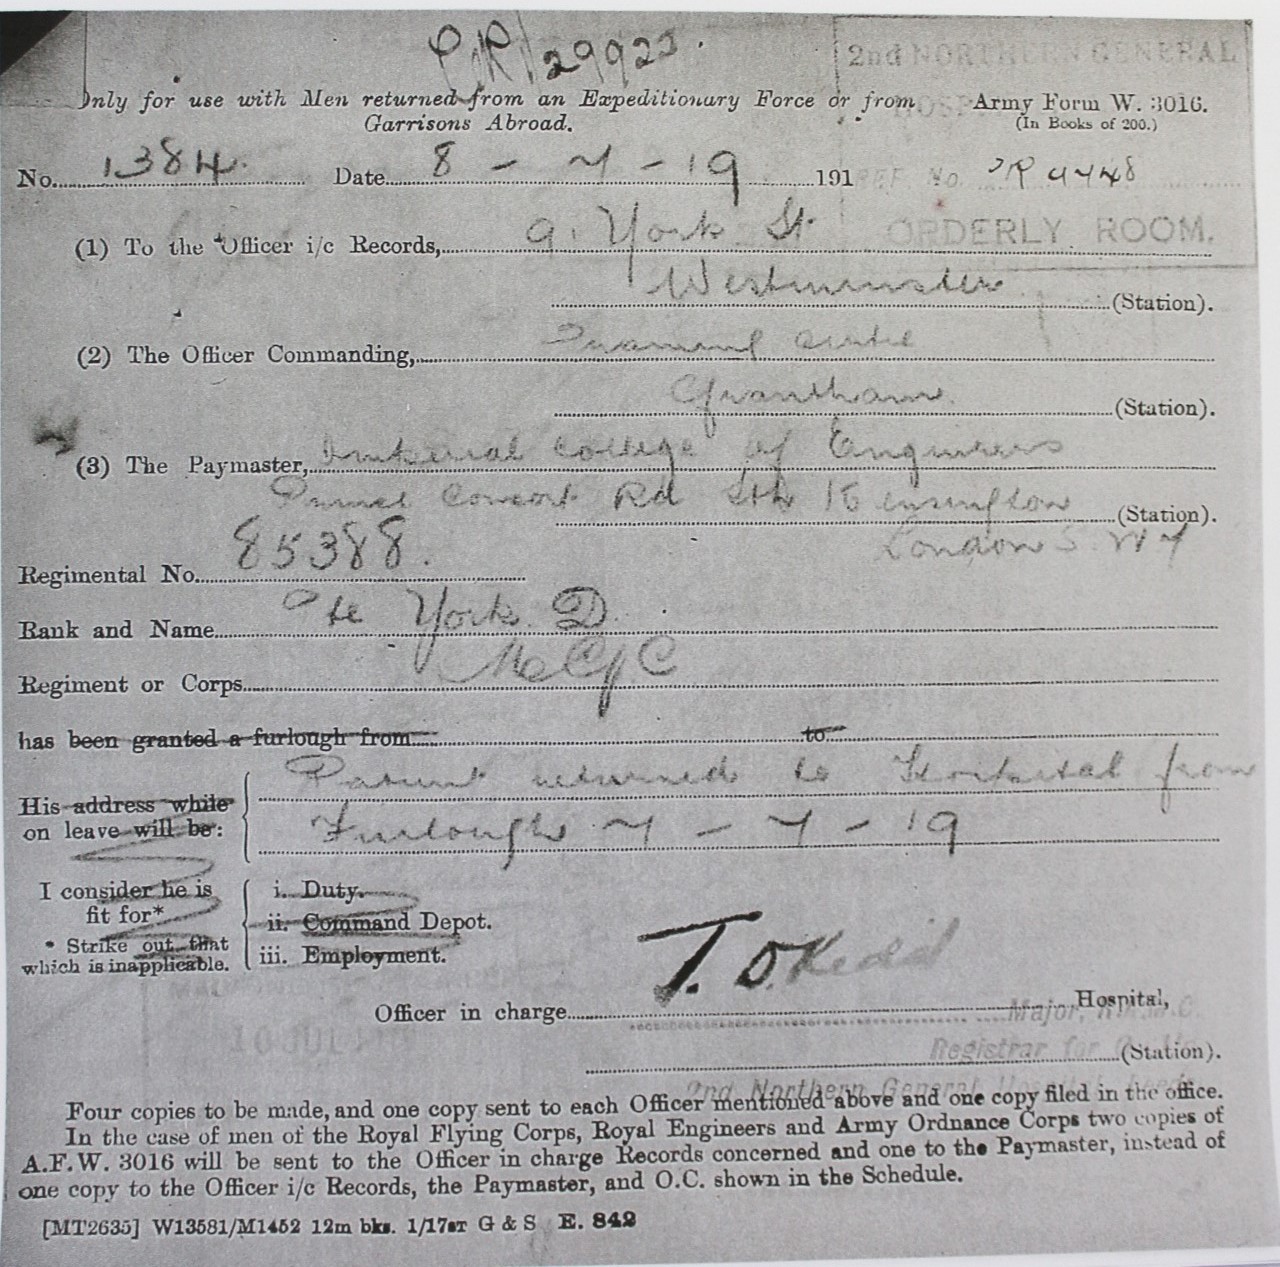 CR/29922.
2nd NORTHERN GENERAL
Only for use with Men returned from an Expeditionary Force or from
Garrisons Abroad.
Army Form W. 3016.
(In Books of 200.)
No. 1384. Date 8 - 7 - 19 191
REF No.
(1) To the Officer i/c Records, 9. York St.
ORDERLY ROOM.
Westminster (Station).
(2) The Officer Commanding, Training Centre
Grantham. (Station).
(3) The Paymaster, Imperial College of Engineers
Prince Consort Rd Sth Kensington (Station).
London S. W 7
Regimental No. 85388.
Rank and Name Pte York. D.
Regiment or Corps M.G.C
has been granted a furlough from to
His address while
on leave will be:
Patient returned to Hospital from
Furlough 7 - 7 - 19
I consider he is
fit for*
* Strike out that
which is inapplicable.
i. Duty.
ii. Command Depot.
iii. Employment.
T. O.
Officer in charge Hospital,
Major, R.A.M.C.
Registrar for
(Station).
2nd Northern General Hospital, Leeds
Four copies to be made, and one copy sent to each Officer mentioned above and one copy filed in the office.
In the case of men of the Royal Flying Corps, Royal Engineers and Army Ordnance Corps two copies of
A.F.W. 3016 will be sent to the Officer in charge Records concerned and one to the Paymaster, instead of
one copy to the Officer i/c Records, the Paymaster, and O.C. shown in the Schedule.
[MT2635] W13581/M1452 12m bks. 1/17sr G & S E. 842